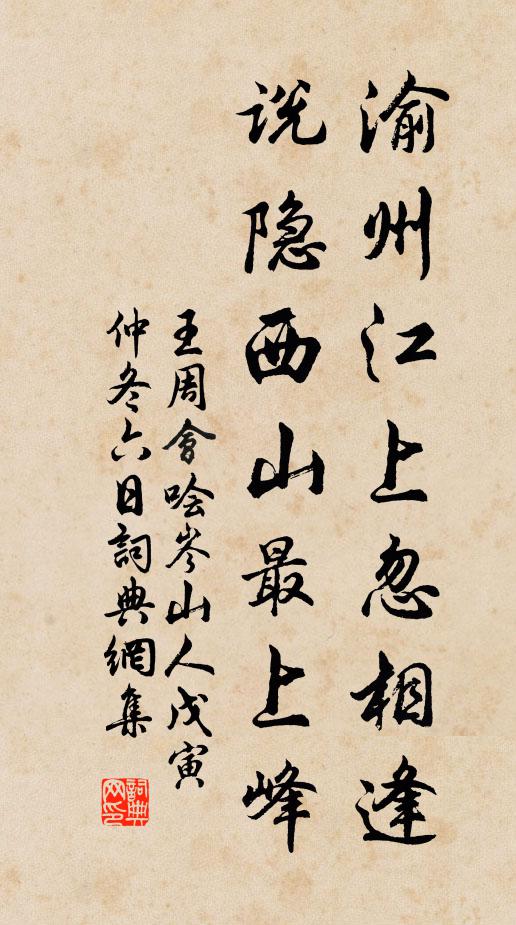 渝州江上忽相逢
说隐西山最上峰
王周会哙岑山人戊寅
仲冬六日詞典網集
詞典网印